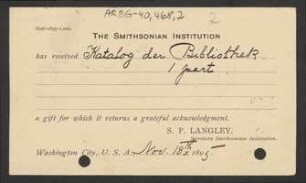 ARBG-40,468,2
2
THE SMITHSONIAN INSTITUTION
has received Katalog der Bibliothek
1 part.
a gift for which it returns a grateful acknowledgment.
S. P. LANGLEY,
Secretary Smithsonian Institution.
Washington City, U. S. A. Nov. 18th 1895